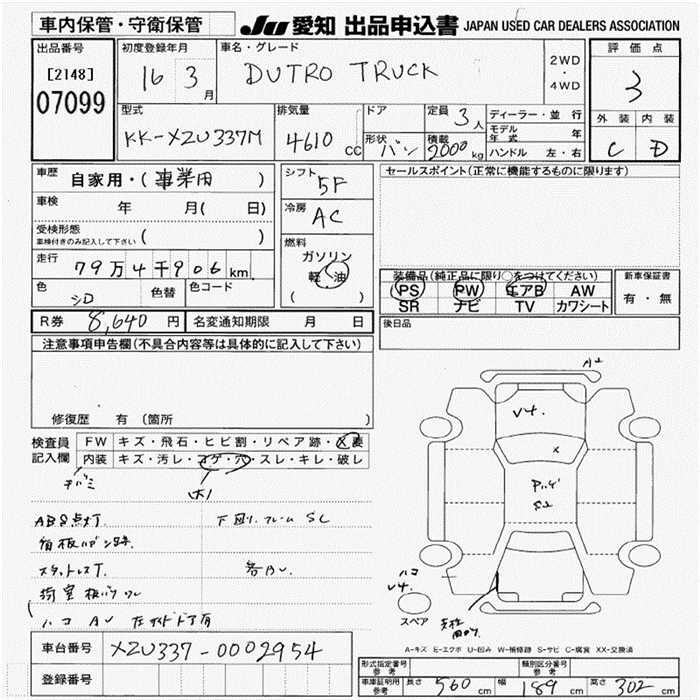 車内保管・守衛保管
JU 愛知 出品申込書 JAPAN USED CAR DEALERS ASSOCIATION
出品番号
[2148]
07099
初度登録年月
16 3 月
車名・グレード
DUTRO TRUCK
2WD
・
4WD
評価点
3
外装 内装
C D
型式
KK-XZU337M
排気量
4610 CC
ドア
形状 バン
定員 3 人
積載 2000 kg
ディーラー・並行
モデル年式 年
ハンドル 左・右
車歴 自家用・(事業用)
車検 年 月( 日)
受検形態
車検付きのみ記入して下さい ( )
走行
79万4千906 km
色 シロ 色替
色コード
シフト
5F
冷房
AC
燃料
ガソリン
軽油
( )
セールスポイント(正常に機能するものに限ります)
装備品(純正品に限り○をつけてください)
PS PW エアB AW
SR ナビ TV カワシート
新車保証書
有・無
R券 8,640 円 名変通知期限 月 日
後日品
注意事項申告欄(不具合内容等は具体的に記入して下さい)
修復歴 有 (箇所 )
検査員
記入欄
FW キズ・飛石・ヒビ割・リペア跡・X要
内装 キズ・汚レ・コゲ・穴・スレ・キレ・破レ
ABS点灯
下回リ フレーム SC
スタットレスT.
V4.
X
V4.
スペア
A-キズ E-エクボ U-凹み W-補修跡 S-サビ C-腐食 XX-交換済
車台番号 XZU337-0002954
登録番号
形式指定番号
参考
類別区分番号
参考
車庫証明用
参考
長さ 560 cm 幅 189 cm 高さ 302 cm